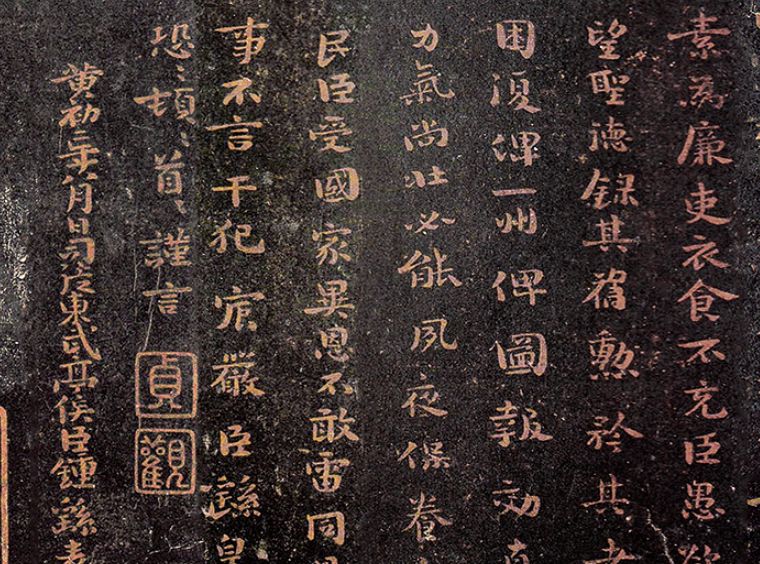 素為廉吏衣食不充臣愚欲
望聖德錄其舊勳矜其老
困復俾一州俾圖報效直
力氣尚壯必能夙夜保養
民臣受國家異恩不敢雷同見
事不言干犯宸嚴臣繇皇
恐恐頓頓首首謹言
黃初二年八月日司徒東武亭侯臣鍾繇表
貞
觀